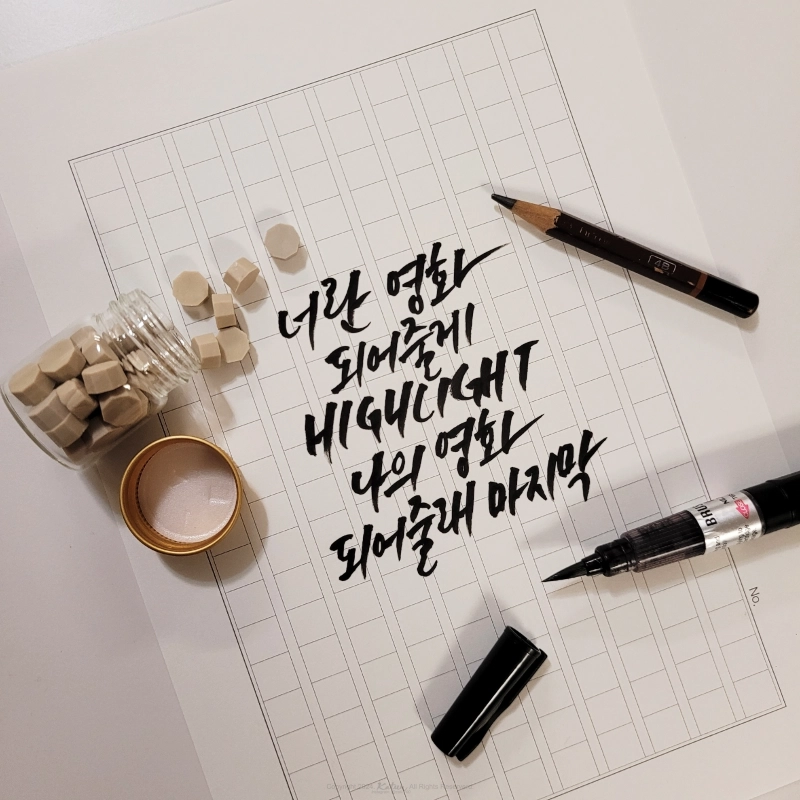 너란 영화
되어줄게
HIGHLIGHT
나의 영화
되어줄래 마지막
4B
BRU
No.
All Rights Reserved